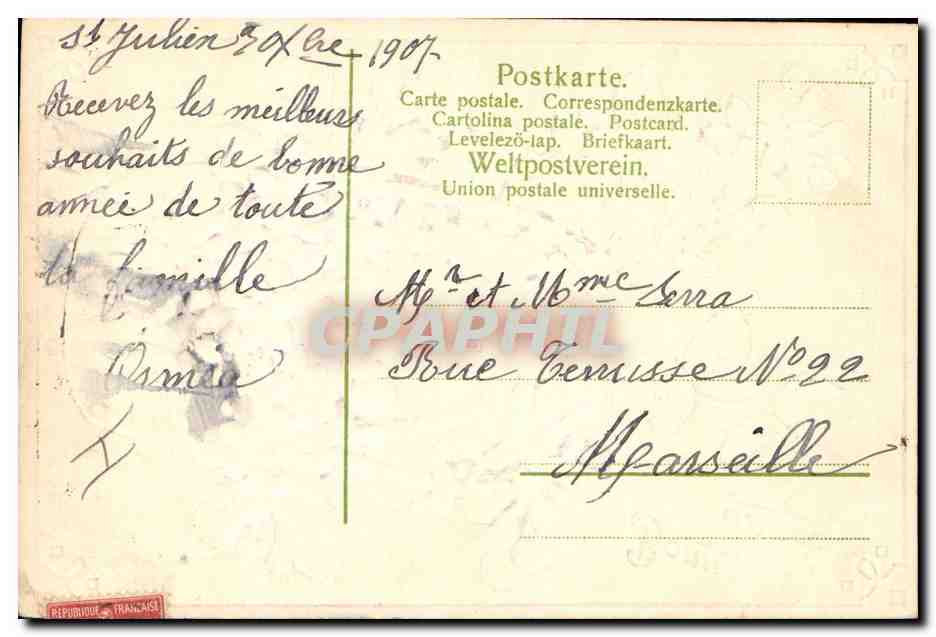 St Julien 30 Xbre 1907
Recevez les meilleurs
souhaits de bonne
année de toute
la famille
Postkarte.
Carte postale. Correspondenzkarte.
Cartolina postale. Postcard.
Levelező-lap. Briefkaart.
Weltpostverein.
Union postale universelle.
Mr et Mme Serra
Rue Terrusse No 22
Marseille
CPAPHIL
REPUBLIQUE FRANÇAISE